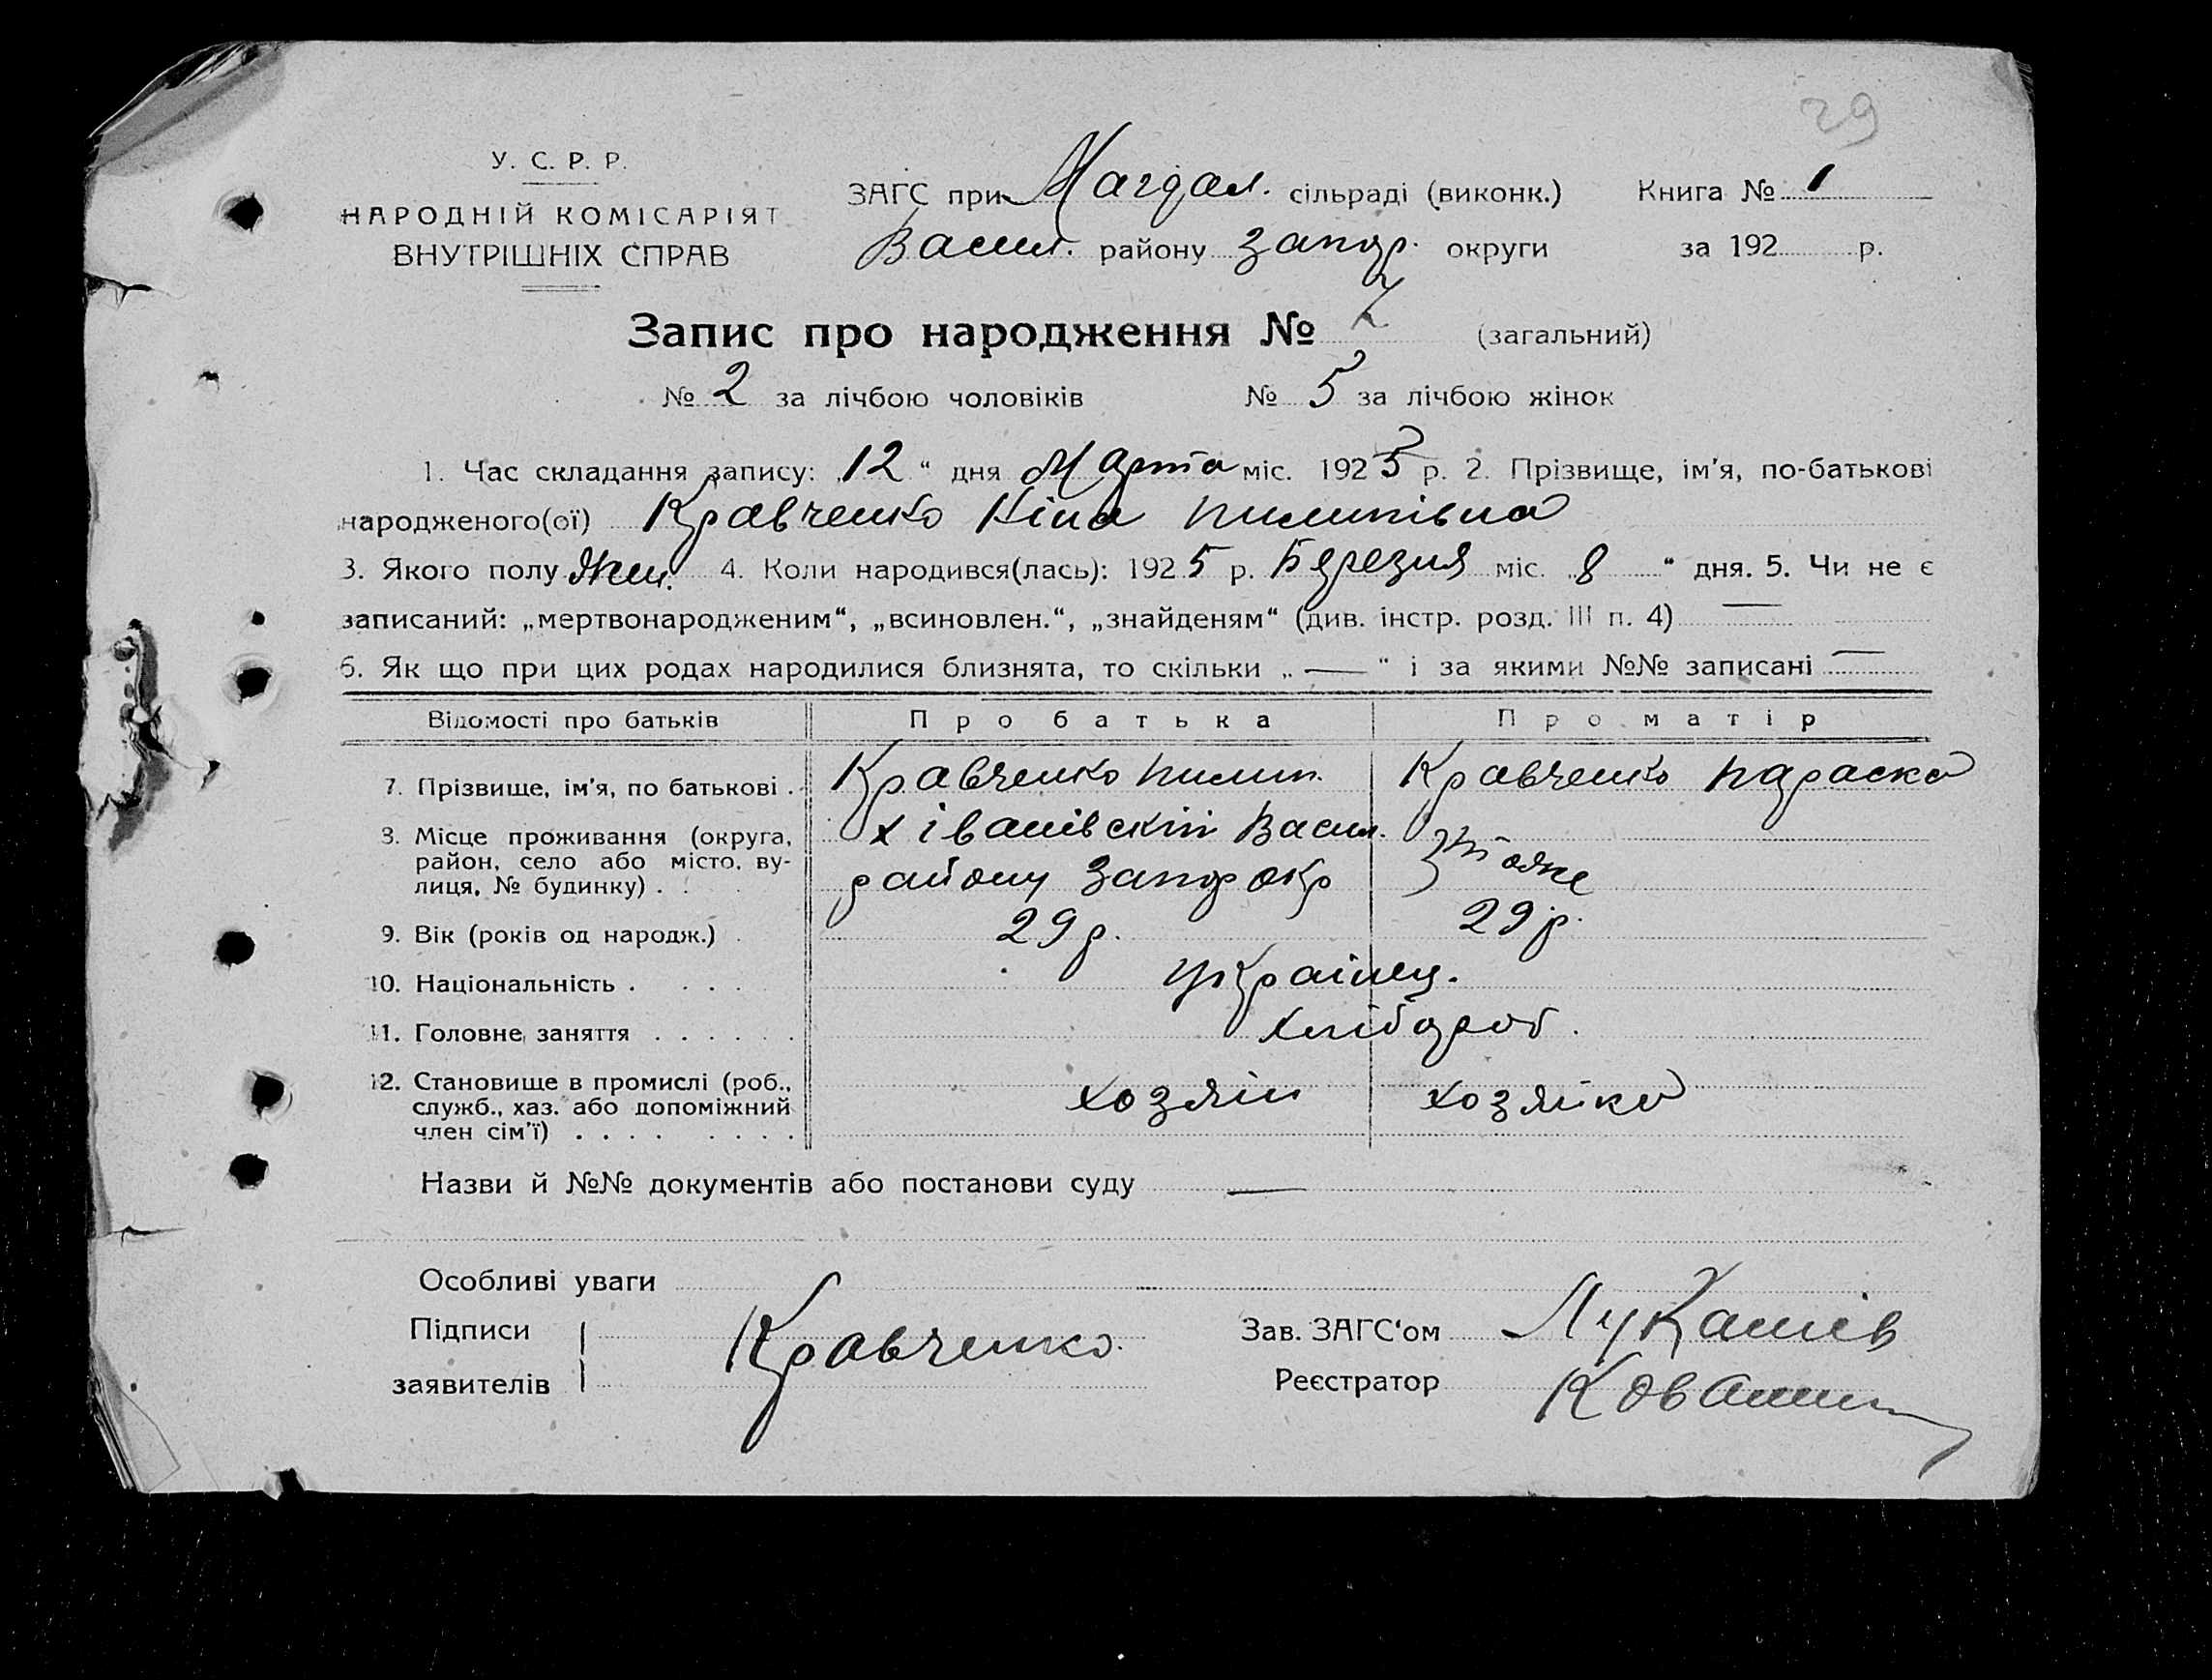 29
У. С. Р. Р.
НАРОДНІЙ КОМІСАРІЯТ
ВНУТРІШНІХ СПРАВ
ЗАГС при Магдал. сільраді (виконк.) Книга № 1
Васил. району Запор. округи за 192 р.
Запис про народження № 7 (загальний)
№ 2 за лічбою чоловіків № 5 за лічбою жінок
1. Час складання запису: „12“ дня Марта міс. 1925 р. 2. Прізвище, ім'я, по-батькові
народженого(ої) Кравченко Ніна Пилипівна
3. Якого полу жін. 4. Коли народився(лась): 1925 р. Березня міс. 8 “ дня. 5. Чи не є
записаний: „мертвонародженим“, „всиновлен.“, „знайденям“ (див. інстр. розд. III п. 4) —
6. Як що при цих родах народилися близнята, то скільки „ — “ і за якими №№ записані —
Відомості про батьків Про батька Про матір
7. Прізвище, ім'я, по батькові . Кравченко Пилип. Кравченко Параска
8. Місце проживання (округа, район, село або місто, ву-лиця, № будинку) . . х Іванівскій Васил. району Запор окр тоже
9. Вік (років од народж.) . 29 р. 29 р.
10. Національність . . . . . Українец.
11. Головне заняття . . . . . . хлібороб.
12. Становище в промислі (роб., служб., хаз. або допоміжний член сім'ї) . . . . . . . . хозяін хозяйка
Назви й №№ документів або постанови суду —
Особливі уваги
Підписи заявителів Кравченко.
Зав. ЗАГС'ом Лукашів
Реєстратор